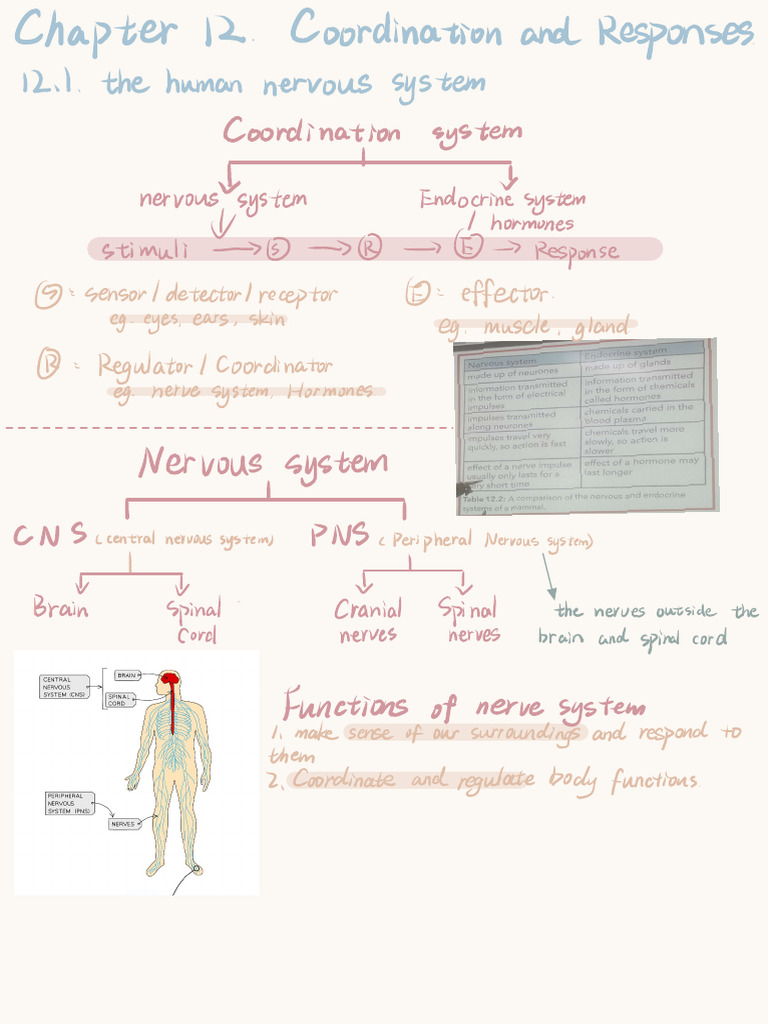 Chapter 12. Coordination and Responses
12.1. the human nervous system
Coordination system
nervous system
Endocrine system
hormones
stimuli → Ⓢ → Ⓡ → Ⓔ → Response
Ⓢ: sensor / detector / receptor
eg. eyes, ears, skin
Ⓔ: effector.
eg. muscle, gland
Ⓡ: Regulator / Coordinator
eg. nerve system, Hormones
Nervous system
Endocrine system
made up of neurones
made up of glands
information transmitted
in the form of electrical
impulses
information transmitted
in the form of chemicals
called hormones
impulses transmitted
along neurones
chemicals carried in the
blood plasma
impulses travel very
quickly, so action is fast
chemicals travel more
slowly, so action is
slower
effect of a nerve impulse
usually only lasts for a
very short time
effect of a hormone may
last longer
Table 12.2: A comparison of the nervous and endocrine
systems of a mammal.
Nervous system
CNS (central nervous system)
PNS (Peripheral Nervous system)
Brain
Spinal
Cord
Cranial
nerves
Spinal
nerves
the nerves outside the
brain and spinal cord
CENTRAL
NERVOUS
SYSTEM (CNS)
BRAIN
SPINAL
CORD
PERIPHERAL
NERVOUS
SYSTEM (PNS)
NERVES
Functions of nerve system
1. make sense of our surroundings and respond to
them
2. Coordinate and regulate body functions